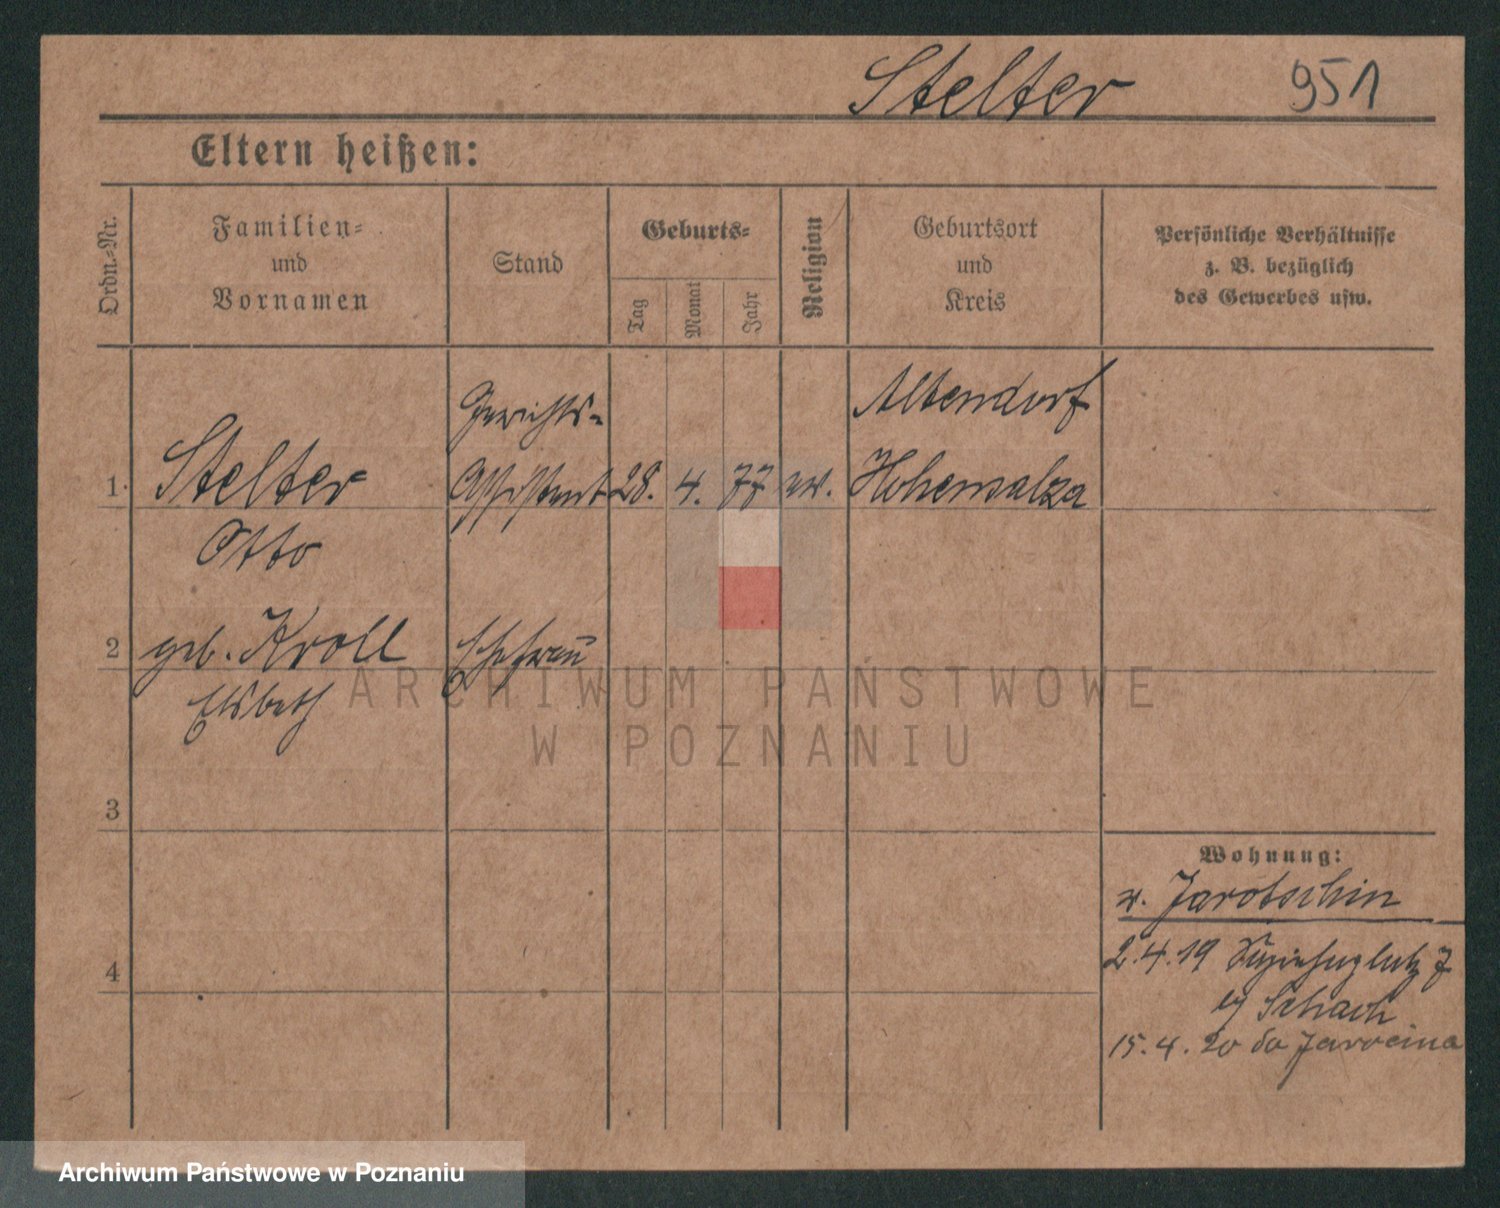 Stelter 951
Eltern heißen:
Ordn.-Nr.
Familien-
und
Vornamen
Stand
Geburts-
Tag
Monat
Jahr
Religion
Geburtsort
und
Kreis
Persönliche Verhältnisse
z. B. bezüglich
des Gewerbes usw.
Gerichts-
Altendorf
1. Stelter Assistent 28. 4. 77 ev. Hohensalza
Otto
2 geb. Kroll Ehefrau
Elsbeth
ARCHIWUM PAŃSTWOWE
W POZNANIU
3
Wohnung:
v. Jarotschin
2.4.19
4
b/ Schach
15.4.20 do Jarocina
Archiwum Państwowe w Poznaniu